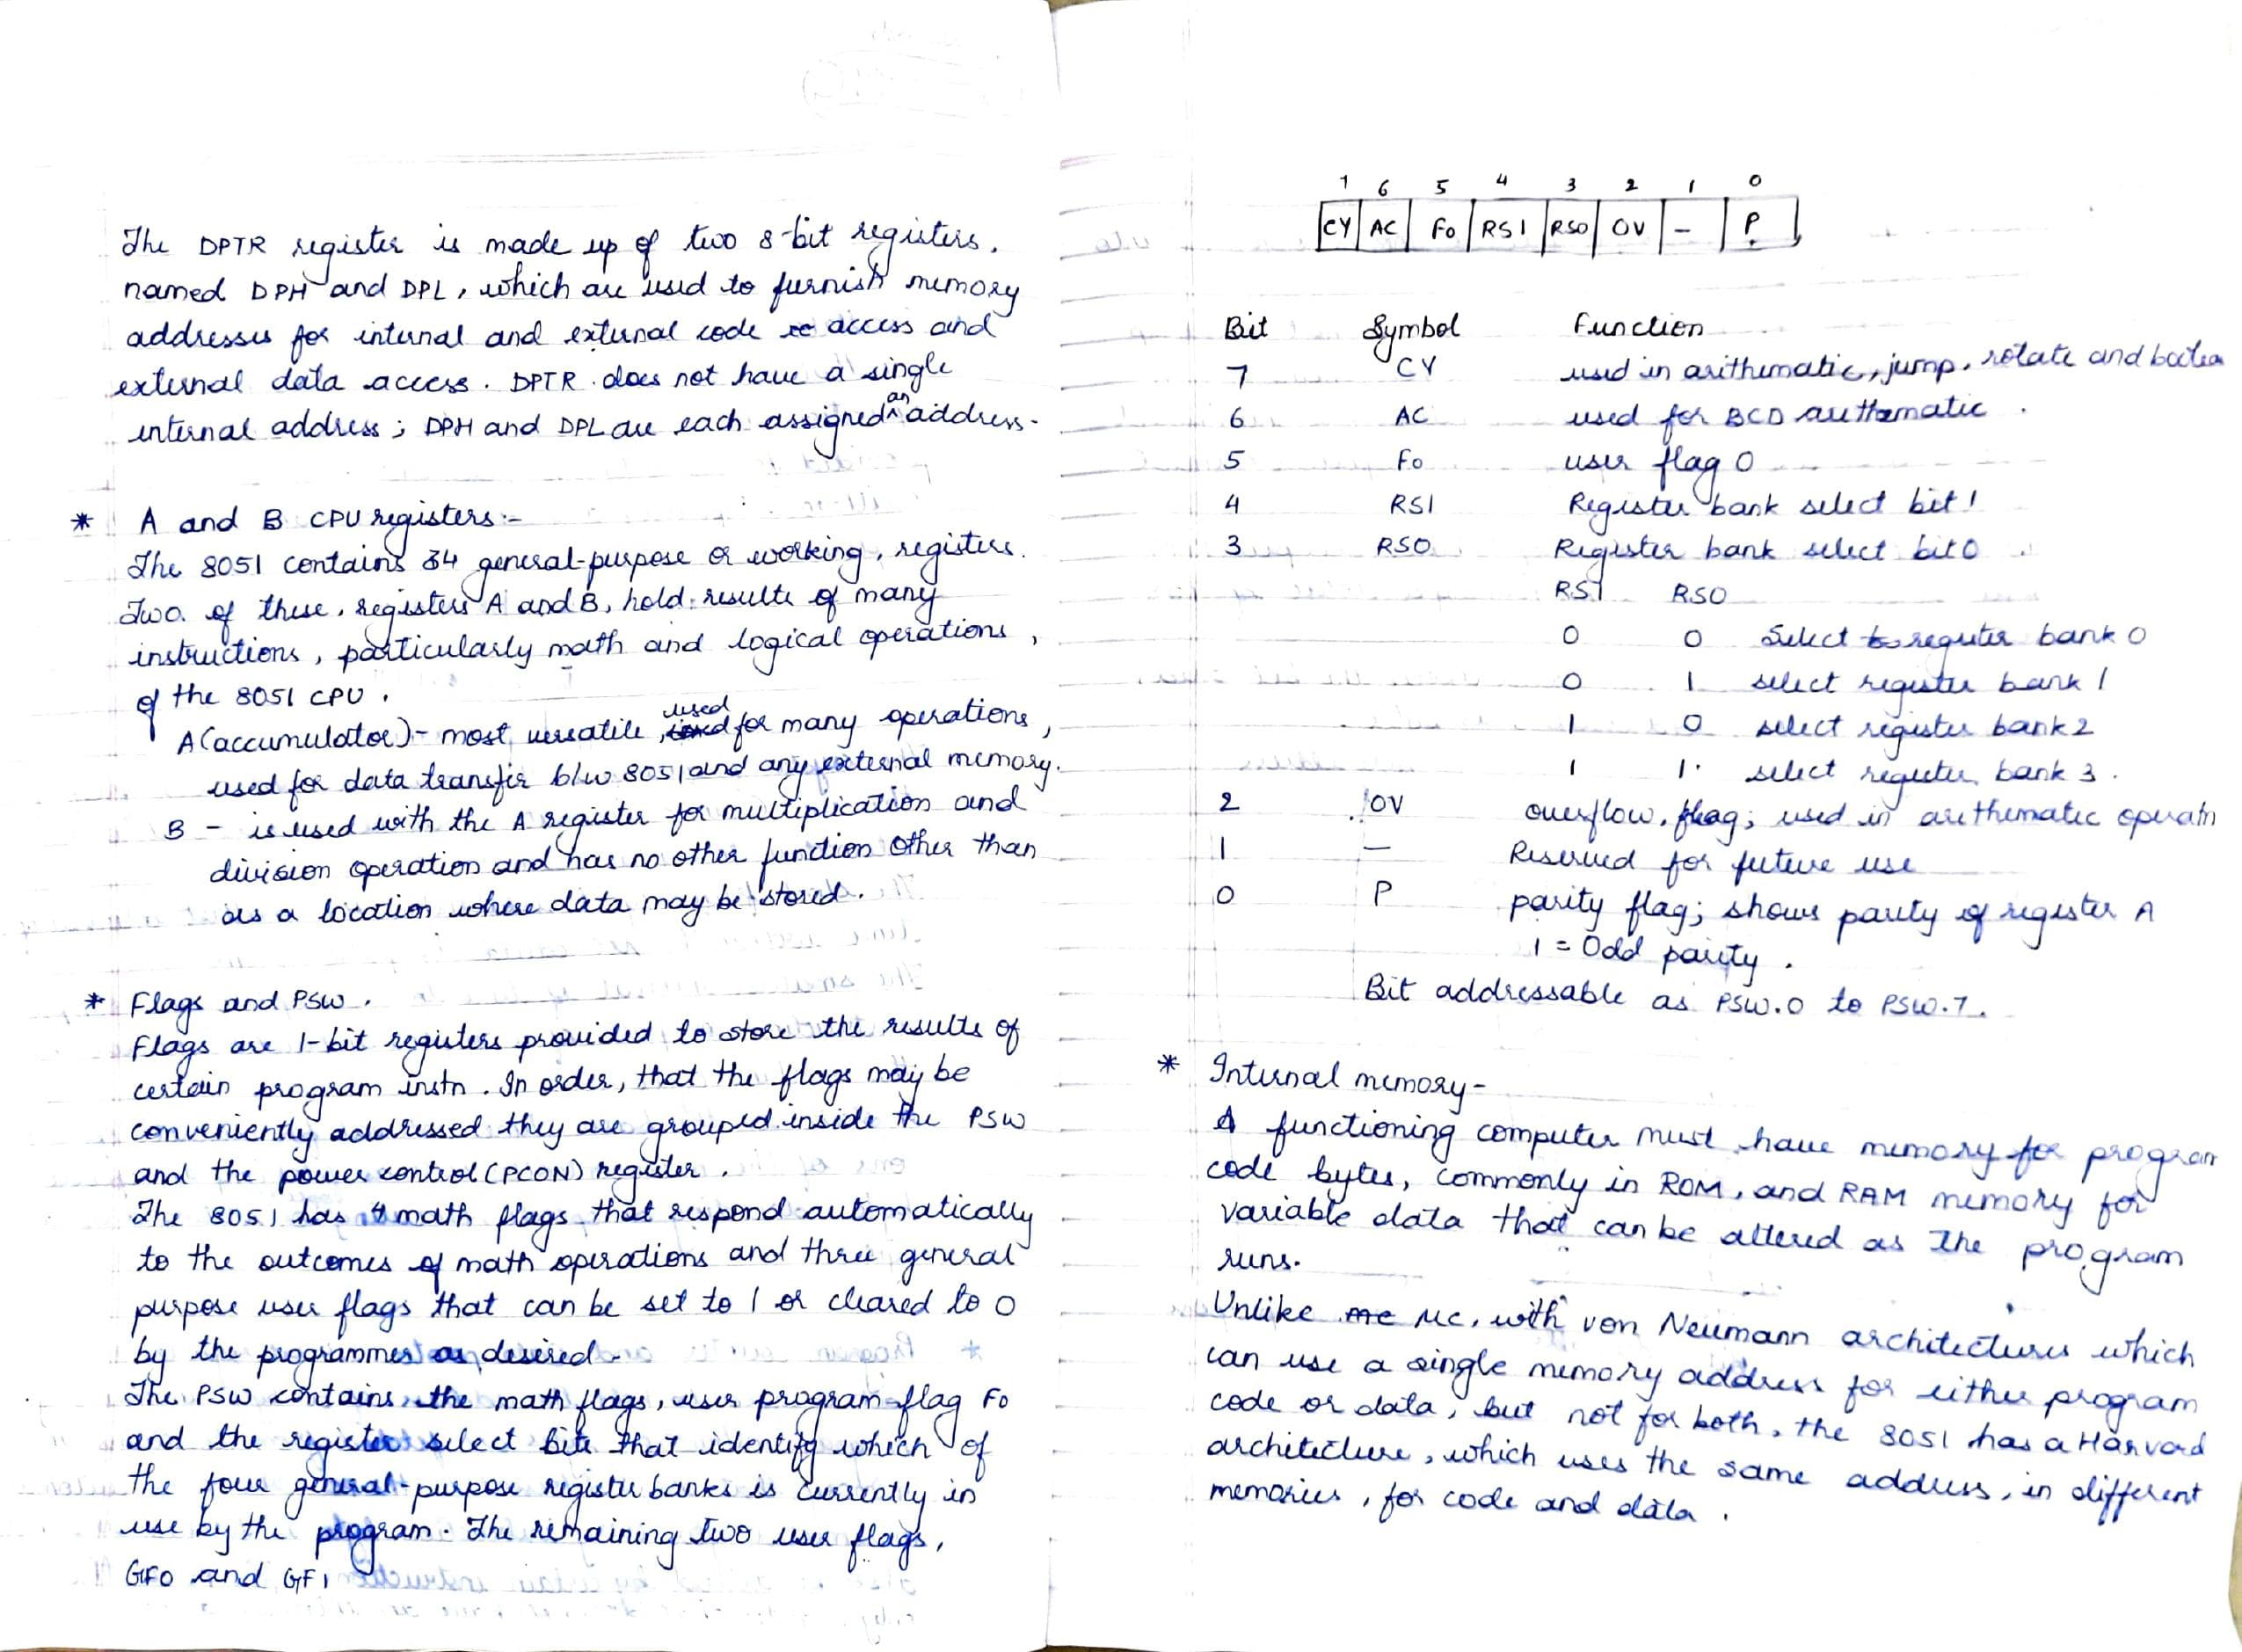 The DPTR register is made up of two 8-bit registers,
named DPH and DPL, which are used to furnish memory
addresses for internal and external code access and
external data access. DPTR does not have a single
internal address; DPH and DPL are each assigned an address.
* A and B CPU registers:-
The 8051 contains 34 general-purpose or working, registers.
Two of these, registers A and B, hold results of many
instructions, particularly math and logical operations,
of the 8051 CPU.
A(accumulator)- most versatile, used for many operations,
used for data transfer b/w 8051 and any external memory.
B - is used with the A register for multiplication and
division operation and has no other function other than
as a location where data may be stored.
* Flags and PSW.
Flags are 1-bit registers provided to store the results of
certain program instn. In order, that the flags may be
conveniently addressed they are grouped inside the PSW
and the power control (PCON) register.
The 8051 has 4 math flags that respond automatically
to the outcomes of math operations and three general
purpose user flags that can be set to 1 or cleared to 0
by the programmer as desired.
The PSW contains the math flags, user program flag F0
and the register select bits that identify which of
the four general-purpose register banks is currently in
use by the program. The remaining two user flags,
GF0 and GF1
7 6 5 4 3 2 1 0
CY AC F0 RS1 RS0 OV - P
Bit Symbol Function
7 CY used in arithematic, jump, rotate and
6 AC used for BCD arithematic.
5 F0 user flag 0
4 RS1 Register bank select bit 1
3 RS0 Register bank select bit 0
RS1 RS0
0 0 Select register bank 0
0 1 select register bank 1
1 0 select register bank 2
1 1 select register bank 3.
2 OV overflow, flag; used in arithematic operatn
1 - Reserved for future use
0 P parity flag; shows parity of register A
1 = Odd parity.
Bit addressable as PSW.0 to PSW.7.
* Internal memory-
A functioning computer must have memory for program
code bytes, commonly in ROM, and RAM memory for
variable data that can be altered as the program
runs.
Unlike MC, with von Neumann architectures which
can use a single memory address for either program
code or data, but not for both, the 8051 has a Harvard
architecture, which uses the same address, in different
memories, for code and data.